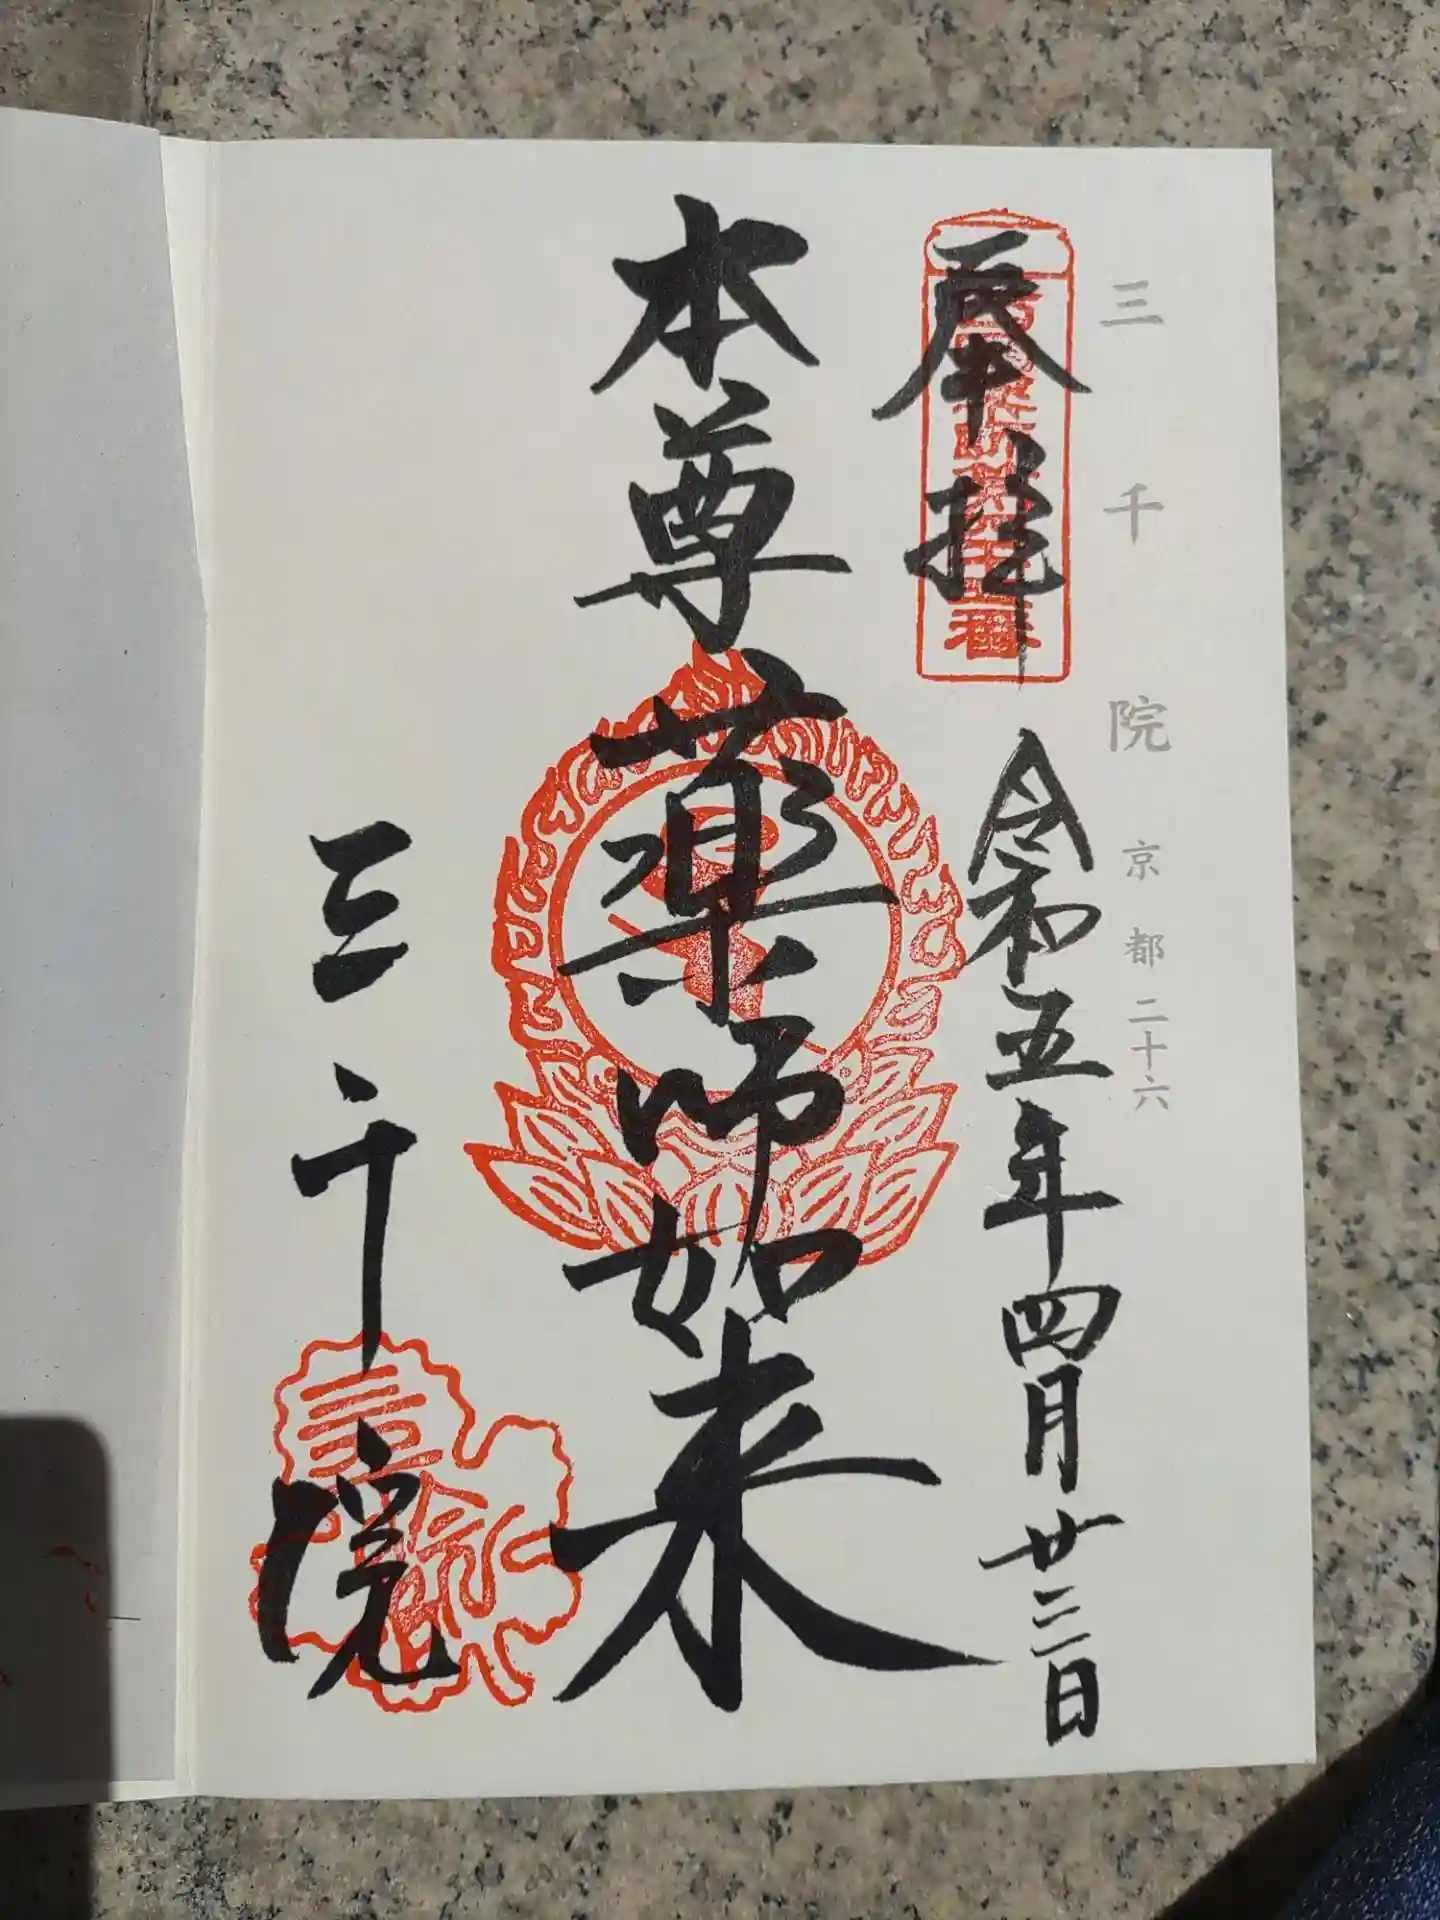 三千院 京都二十六
奉拝 令和五年四月廿三日
本尊薬師如来
三千院